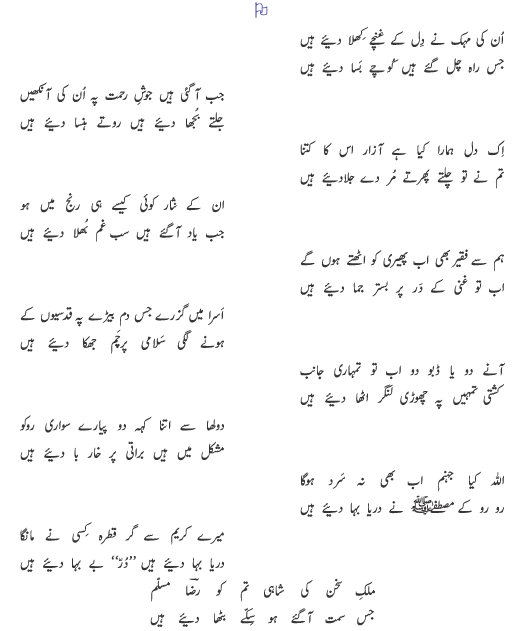 اُن کی مہک نے دِل کے غنچے کِھلا دیئے ہیں
جس راہ چل گئے ہیں کُوچے بَسا دیئے ہیں
جب آگئی ہیں جوشِ رحمت پہ اُن کی آنکھیں
جلتے بُجھا دیئے ہیں روتے ہنسا دیئے ہیں
اِک دل ہمارا کیا ہے آزار اس کا کتنا
تم نے تو چلتے پھرتے مُر دے جلادیئے ہیں
ان کے نثار کوئی کیسے ہی رنج میں ہو
جب یاد آگئے ہیں سب غم بُھلا دیئے ہیں
ہم سے فقیر بھی اب پھیری کو اٹھتے ہوں گے
اب تو غنی کے دَر پر بستر جما دیئے ہیں
اَسرا میں گزرے جس دم بیڑے پہ قدسیوں کے
ہونے لگی سَلامی پرچَم جھکا دیئے ہیں
آنے دو یا ڈبو دو اب تو تمہاری جانب
کشتی تمہیں پہ چھوڑی لنگر اٹھا دیئے ہیں
دولھا سے اتنا کہہ دو پیارے سواری روکو
مشکل میں ہیں براتی پر خار با دیئے ہیں
اللہ کیا جہنم اب بھی نہ سَرد ہوگا
رو رو کے مصطفےٰ ﷺ نے دریا بہا دیئے ہیں
میرے کریم سے گر قطرہ کِسی نے مانگا
دریا بہا دیئے ہیں ”دُرّ“ بے بہا دیئے ہیں
ملکِ سخن کی شاہی تم کو رضؔا مسلّم
جس سمت آگئے ہو سِکّے بٹھا دیئے ہیں